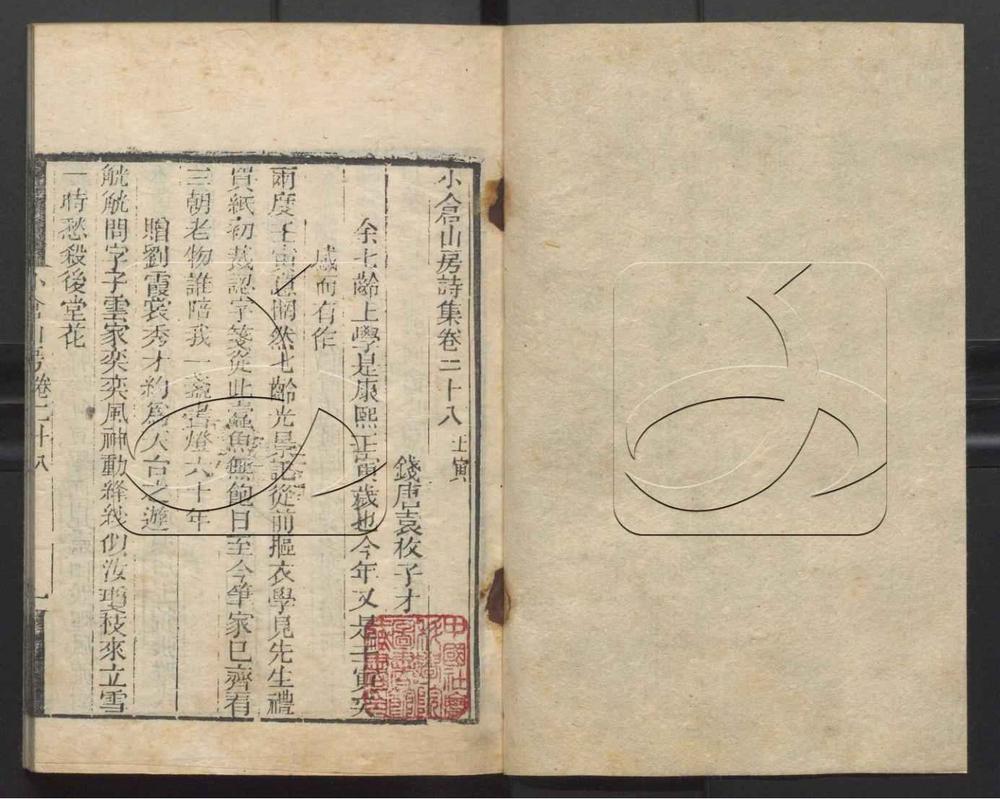 小倉山房詩集卷二十八 壬寅
錢唐袁枚子才
余七齡上學是康熙壬寅歲也今年又是壬寅矣
感而有作
兩度壬寅意惘然七齡光景記從前摳衣學見先生禮
買紙初裁認字箋從此蠹魚無飽日至今筆冢已齊肩
三朝老物誰陪我一盞書燈六十年
贈劉霞裳秀才約為天台之遊
觥觥問字子雲家奕奕風神動絳紗似汝瓊枝來立雪
一時愁殺後堂花
小倉山房卷二十八
一